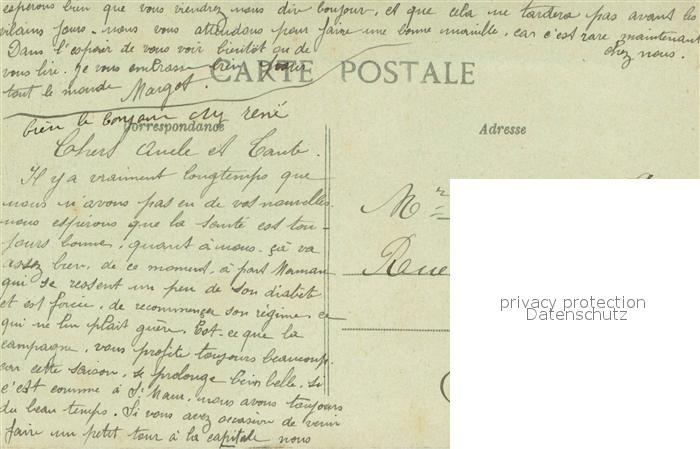 espérons bien que vous viendrez nous dire bonjour, et que cela ne tardera pas avant les
vilains jours. nous vous attendons pour faire une bonne manille, car c'est rare maintenant
Dans l'espoir de vous voir bientôt ou de chez nous.
vous lire. Je vous embrasse bien pour
tout le monde Margot.
CARTE POSTALE
bien le bonjour chez rené
Correspondance
Adresse
Chers Oncle et Tante.
Il y a vraiment longtemps que
nous n'avons pas eu de vos nouvelles
nous espérons que la santé est tou-
jours bonne, quant à nous. çà va
assez bien, de ce moment, à part Maman
qui se ressent un peu de son diabèt
et est forcée, de recommencer son régime, ce
qui ne lui plait guère. Est-ce que la
campagne, vous profite toujours beaucoup.
car cette saison, se prolonge bien belle, si
c'est comme à St Maur, nous avons toujours
du beau temps. Si vous avez occasion de venir
faire un petit tour à la capitale nous
Mr
Rue
privacy protection
Datenschutz